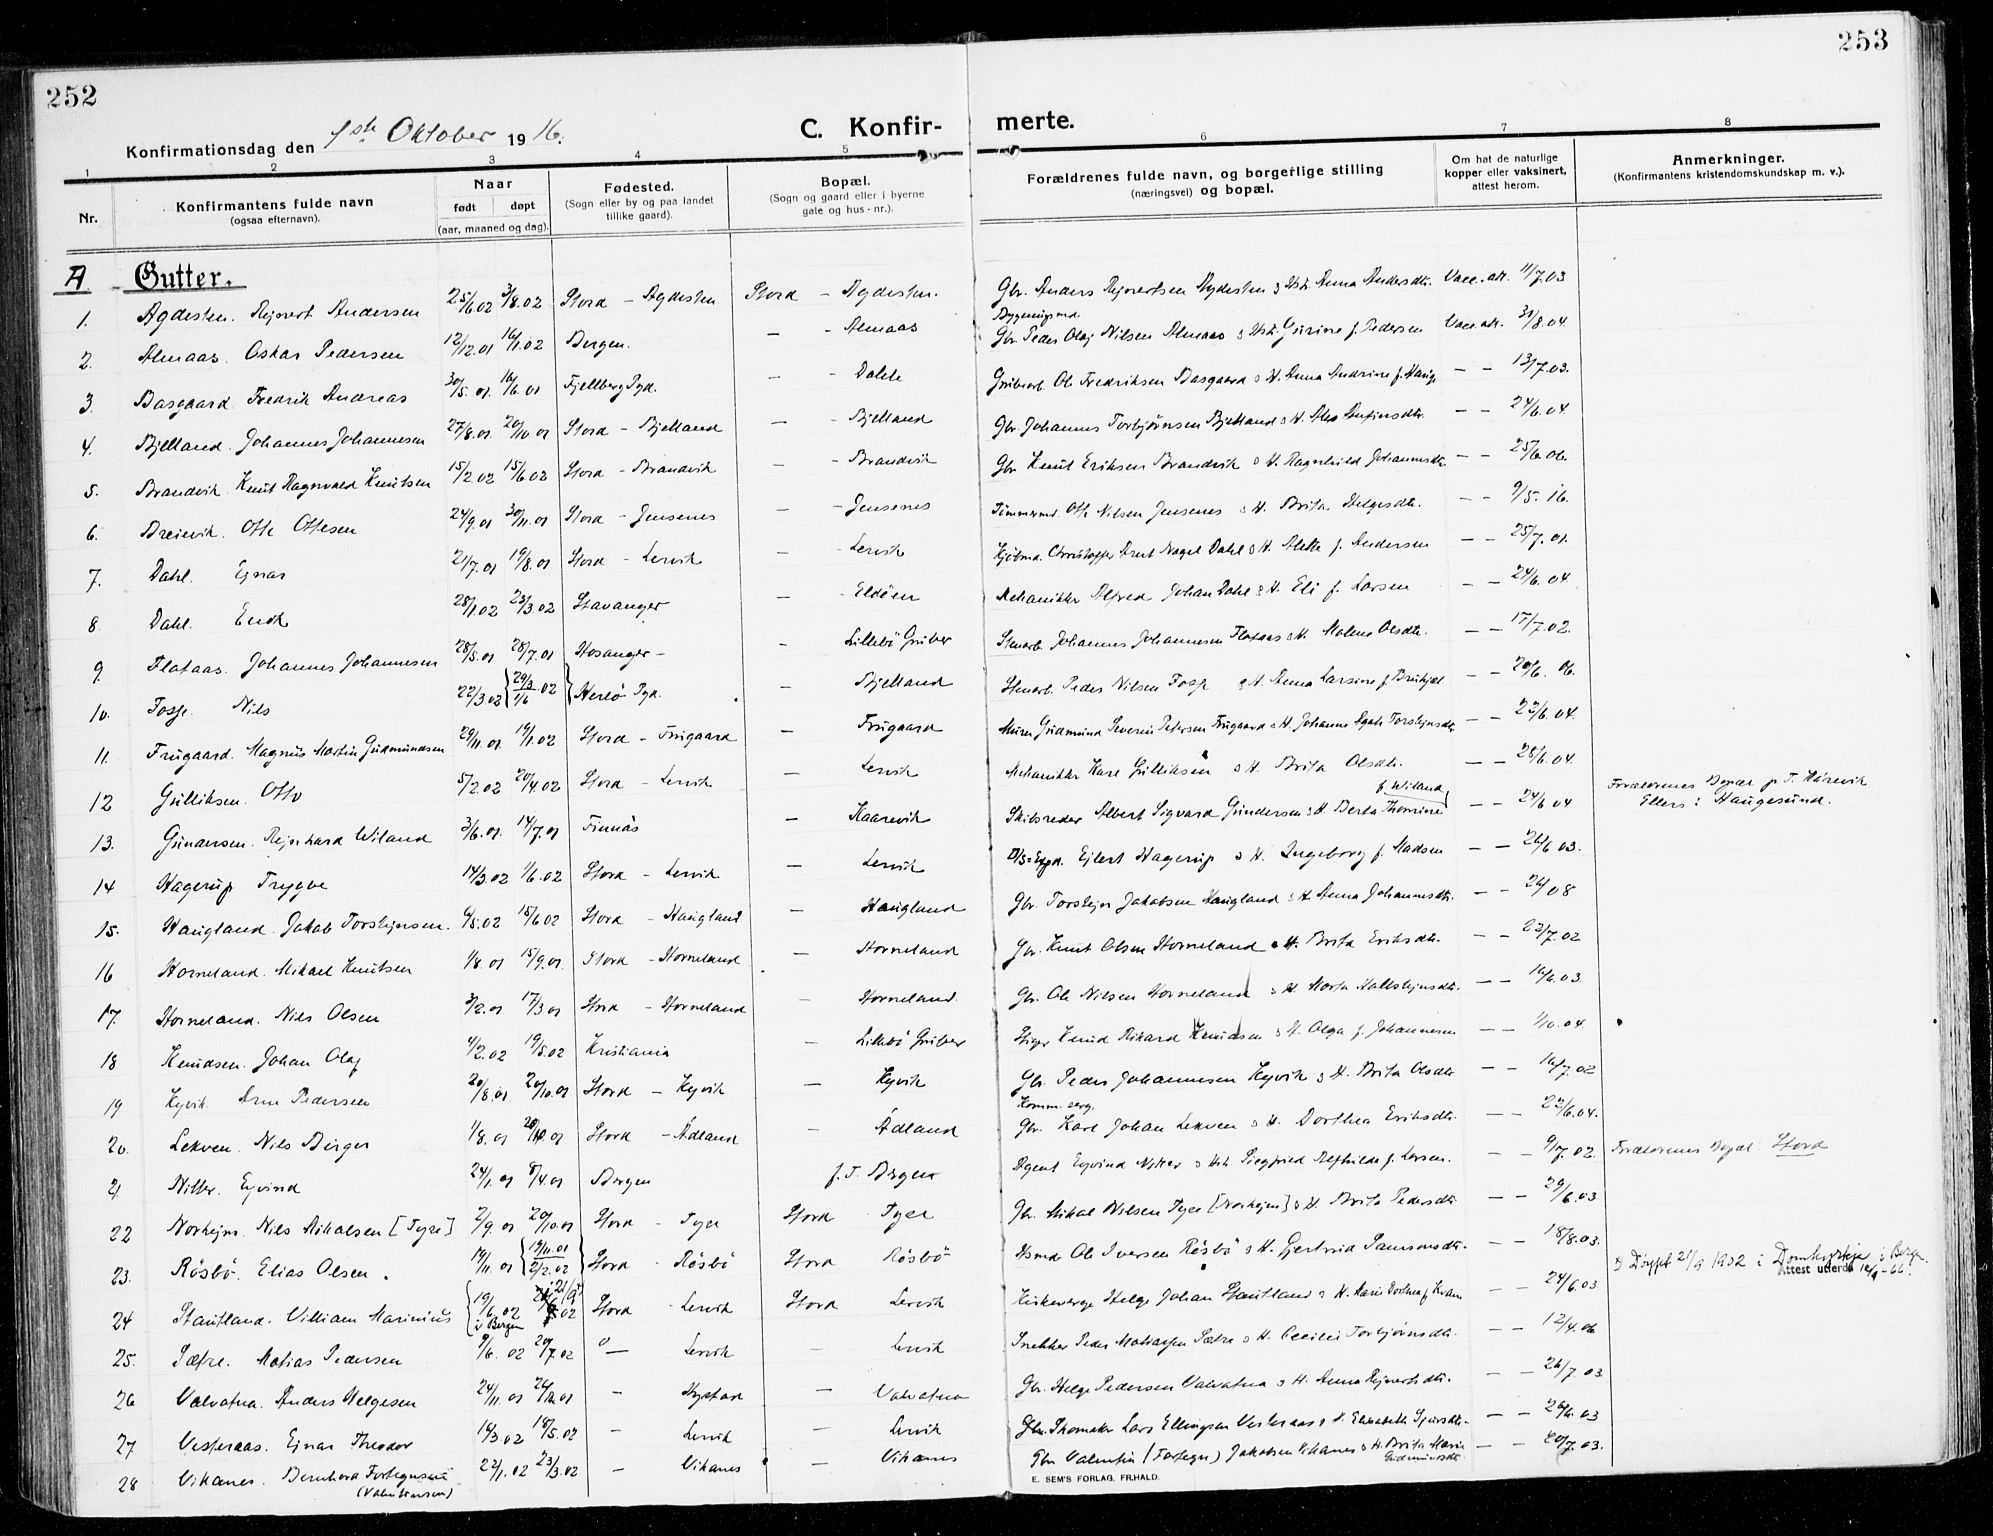 252
253
Konfirmationsdag den 1ste Oktober 1916.
C. Konfirmerte.
1 2 3 4 5 6 7 8
Nr.
Konfirmantens fulde navn
(ogsaa efternavn).
Naar
født døpt
(aar, maaned og dag).
Fødested.
(Sogn eller by og paa landet
tillike gaard).
Bopæl.
(Sogn og gaard eller i byerne
gate og hus-nr.).
Forældrenes fulde navn, og borgerlige stilling
(næringsvei) og bopæl.
Om hat de naturlige
kopper eller vaksinert,
attest herom.
Anmerkninger.
(Konfirmantens kristendomskundskap m. v.).
A Gutter.
1. Agdesten. Rejnert Andersen 25/6.02 3/8.02 Stord - Agdesten Stord - Agdesten. Gbr. Anders Rejnertsen Agdesten o Hst. Anna Andersdtr. Vacc. att. 11/7.03
Bygningsmd.
2. Almaas. Oskar Pedersen 12/12.01 16/1.02 Bergen. — - Almaas Gbr. Peder Olaj Nilsen Almaas o Hst. Gurine f. Pedersen Vacc. att. 31/8.04.
3. Basgaard. Fredrik Andreas 30/5.01 16/6.01 Fjellberg Pgd. — - Dahle Grubearb. Ole Fredriksen Basgaard o H. Anna Andrine f. Hauge — — 13/7.03.
4. Bjelland. Johannes Johannesen 27/8.01 20/10.01 Stord - Bjelland — - Bjelland Gbr. Johannes Torbjørnsen Bjelland o H. Anfinsdtr. — — 24/6.04.
5. Brandvik. Knut Ragnvald Knutsen 15/2.02 15/6.02 Stord - Brandvik — - Brandvik Gbr. Knut Eriksen Brandvik o H. Ragnhild Johannesdtr. — — 25/6.06.
6. Breievik. Otto Ottesen 24/9.01 30/11.01 Stord - Jensenes — - Jensenes Tømmermd. Otto Nilsen Jensenes o H. Brita Helgesdtr. — — 9/5.16.
7. Dahl. Ejnar 21/7.01 19/8.01 Stord - Lervik — - Lervik Kjøbmd. Christoffer Arent Nagel Dahl o H. Alette f. Andersen — — 25/7.01.
8. Dahl. 28/1.02 23/3.02 Stavanger — - Eldøen Mekaniker Alfred Johan Dahl o H. Eli f. Larsen — — 24/6.04.
9. Flataas. Johannes Johannesen 28/5.01 28/7.01 Hosanger - — Lillebö Gruber Stenarb. Johannes Johannesen Flataas o H. Malene Olsdtr. — — 17/7.02.
10. Fosse. Nils 22/3.02 29/3 1/6 .02 Herlö Pgd. — Bjelland Stenarb. Peder Nilsen Fosse o H. Anna Larsine f. — — 20/6.06.
11. Frugaard. Magnus Martin Gudmundsen 29/11.01 19/1.02 Stord - Frugaard — Frugaard Murer Gudmund Severin Petersen Frugaard o H. Johanne Agate Torstejnsdtr. — — 22/6.04.
12 Gulliksen. Otto 5/2.02 20/4.02 Stord - Lervik — Lervik Mekaniker Karl Gulliksen o H. Brita Olsdtr. — — 28/6.04.
f. Wiland
13. Gundersen. Rejnhard Wiland 3/6.01 14/7.01 Finnås — Kaarevik Skibsreder Albert Sigvard Gundersen o H. Berta Thomine — — 24/6 04 Forældrenes Bopæl p. T. Kårevik
Ellers i Haugesund.
14 Hagerup Trygve 14/3.02 1/6.02 Stord - Lervik — Lervik D/S-Expd. Ejlert Hagerup o H. Ingeborg f. Madsen — — 26/6 03.
15. Haugland. Jakob Torstejnsen. 6/5.02 15/6 02 Stord - Haugland — Haugland Gbr. Torstejn Jakobsen Haugland o H. Anna Johannesdtr. — — 08
16 Horneland. Mikael Knutsen 1/8.01 15/9.01. Stord - Horneland — Horneland Gbr. Knut Olsen Horneland o H. Brita Eriksdtr. — — 23/7.02
17. Horneland. Nils Olsen 3/2.01 17/3.01 Stord - Horneland — Horneland. Gbr. Ole Nilsen Horneland o H. Marta Halstejnsdtr. — — 16/6.03.
18 Knudsen. Johan Olaf 4/2.02 19/5.02 Kristiania — Lillebö Gruber Stiger Knud Rikard Knudsen o H. Olga f. Johannesen — — 1/10.04.
19 Kyvik. Arne Pedersen 20/8.01 20/10.01 Stord - Kyvik — Kyvik Gbr. Peder Johannesen Kyvik o H. Brita Olsdtr. — — 16/7.02
Komm. serg.
20. Lekven. Nils Birger 1/8.01 20/10.01 Stord - Ådland — Ådland Gbr. Karl Johan Lekven o H. Dorthea Eriksdtr. — — 22/6.04.
21 Nitter. Eyvind 24/1.01 8/4.01 Bergen f. T. Bergen Agent Eyvind Nitter o Hst. Siegfried Alfhilda f. Larsen. — — 9/7.02. Forældrenes Bopæl. Stord
22 Norhejm. Nils Mikalsen [Tyse] 2/9.01 20/10.01 Stord - Tyse Stord Tyse Gbr. Mikal Nilsen Tyse [Norhejm] o H. Brita Pedersdtr. — — 29/6.03
23. Rösbö. Elias Olsen. 14/11.01 19/11.01 2/2.02 Stord - Rösbö Stord Rösbö Hsmd Ole Iversen Rösbö o H. Gjertrud Samsonsdtr. — — 18/8.03.
24 Stautland. Villiam Marinius 19/6.02 i Bergen 02 Stord - Lervik Stord Lervik Kirkeverge Helge Johan Stautland o H. Marie Dorthea f. Kvam — — 24/6.03 Døypt 21/9 1902 i Domkyrkja i Bergen
Attest utferda 12/9-66.
25. Sætre. Matias Pedersen 9/6.02 20/7.02 — Lervik — Lervik Snekker Peder Mathiassen Sætre o H. Cecilie Torbjørnsdtr. — — 12/4.06
26 Valvatna. Anders Helgesen 24/11.01 26/12.01 — Hystad — Valvatna Gbr. Helge Pedersen Valvatna o H. Anna Rejnertsdtr. — — 26/7.03
27 Vesteraas. Ejnar Theodor 14/3.02 18/5.02 — Lervik — Lervik Skomaker Lars Ellingsen Vesteraas o H. Elisabeth Sjursdtr. — — 26/6.03
28 Vikanes. Bernhard Fortegnsen (Valentinsen) 22/1.02 23/3.02 — Vikanes — Vikanes Gbr Valentin (Fortegn) Jakobsen Vikanes o H. Brita Marie Gudmundsdtr. — — 20/7.03.
E. SEM'S FORLAG. FR.HALD.